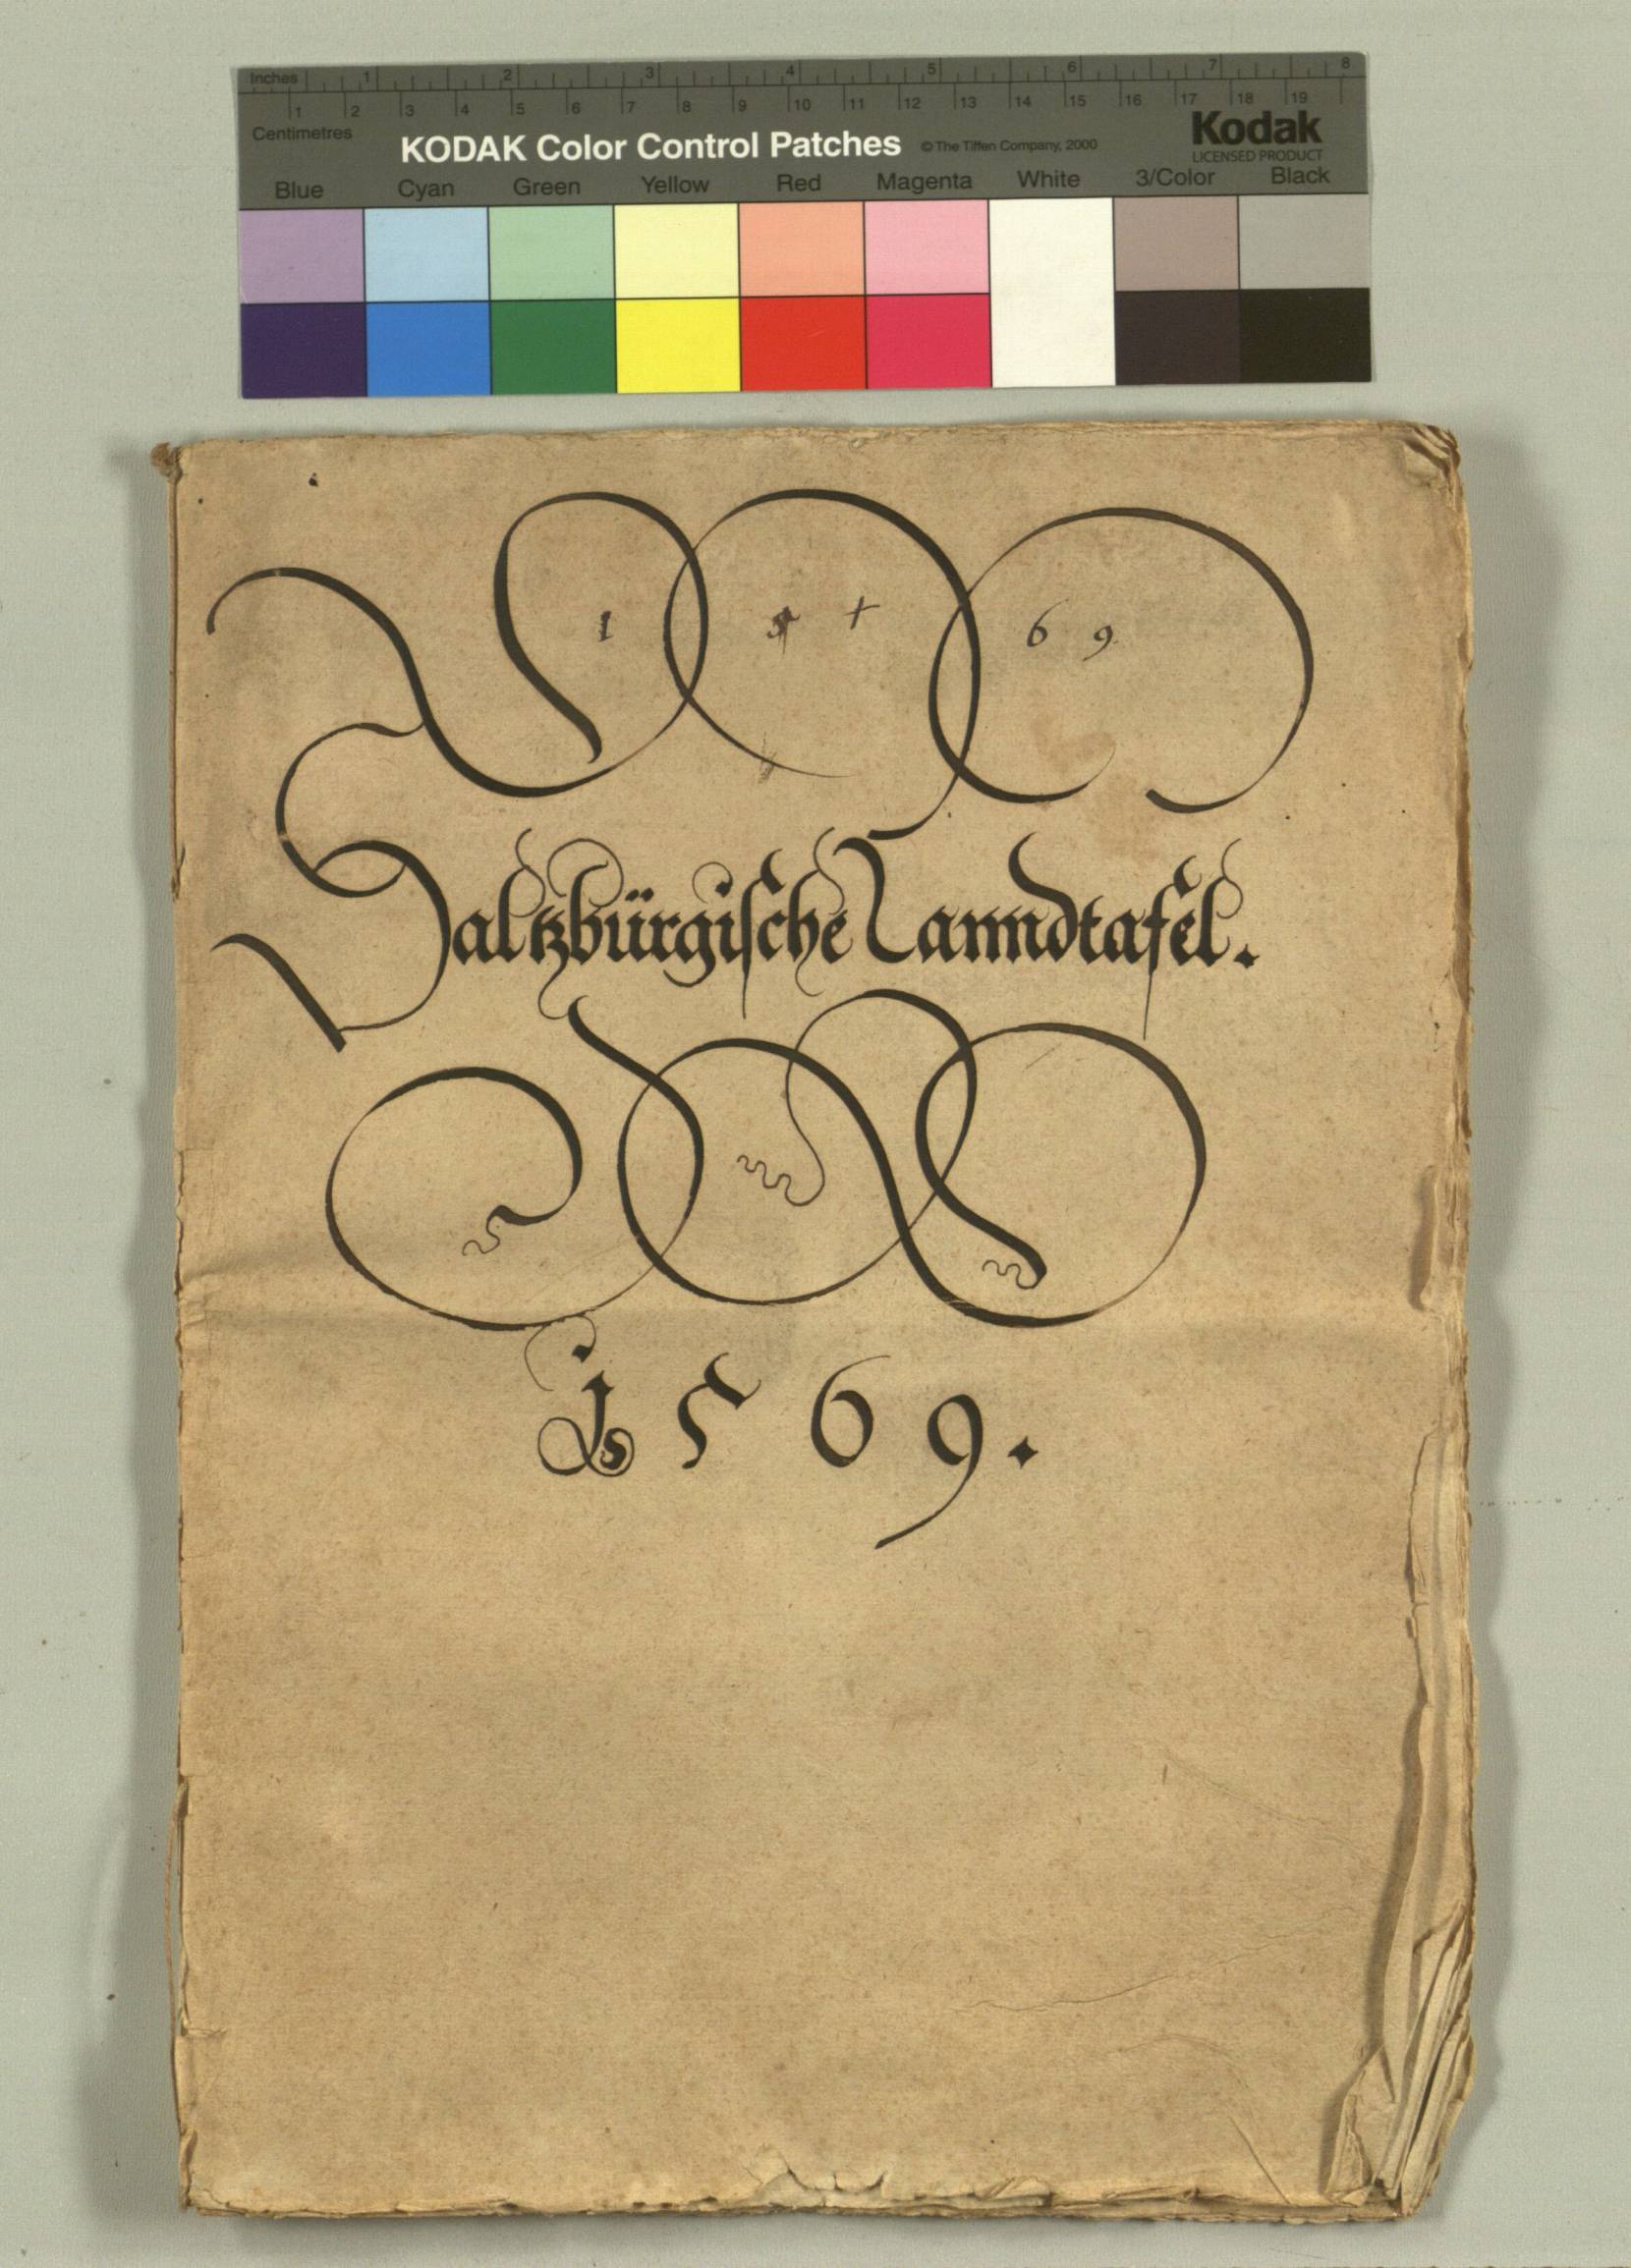 Inches 1 2 3 4 5 6 7 8
1 2 3 4 5 6 7 8 9 10 11 12 13 14 15 16 17 18 19
Centimetres
KODAK Color Control Patches © The Tiffen Company, 2000 Kodak
LICENSED PRODUCT
Blue Cyan Green Yellow Red Magenta White 3/Color Black
1 5 + 6 9.
Saltzbürgische Lanndtafel.
1569.